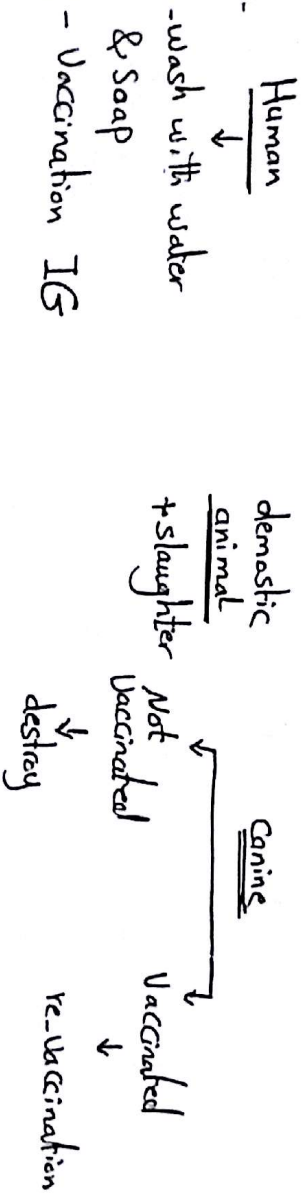 - Human
↓
-wash with water
& Soap
- Vaccination IG
demostic
animal
+slaughter
Canine
Not
Vaccinated
↓
destroy
Vaccinated
↓
re_Vaccination